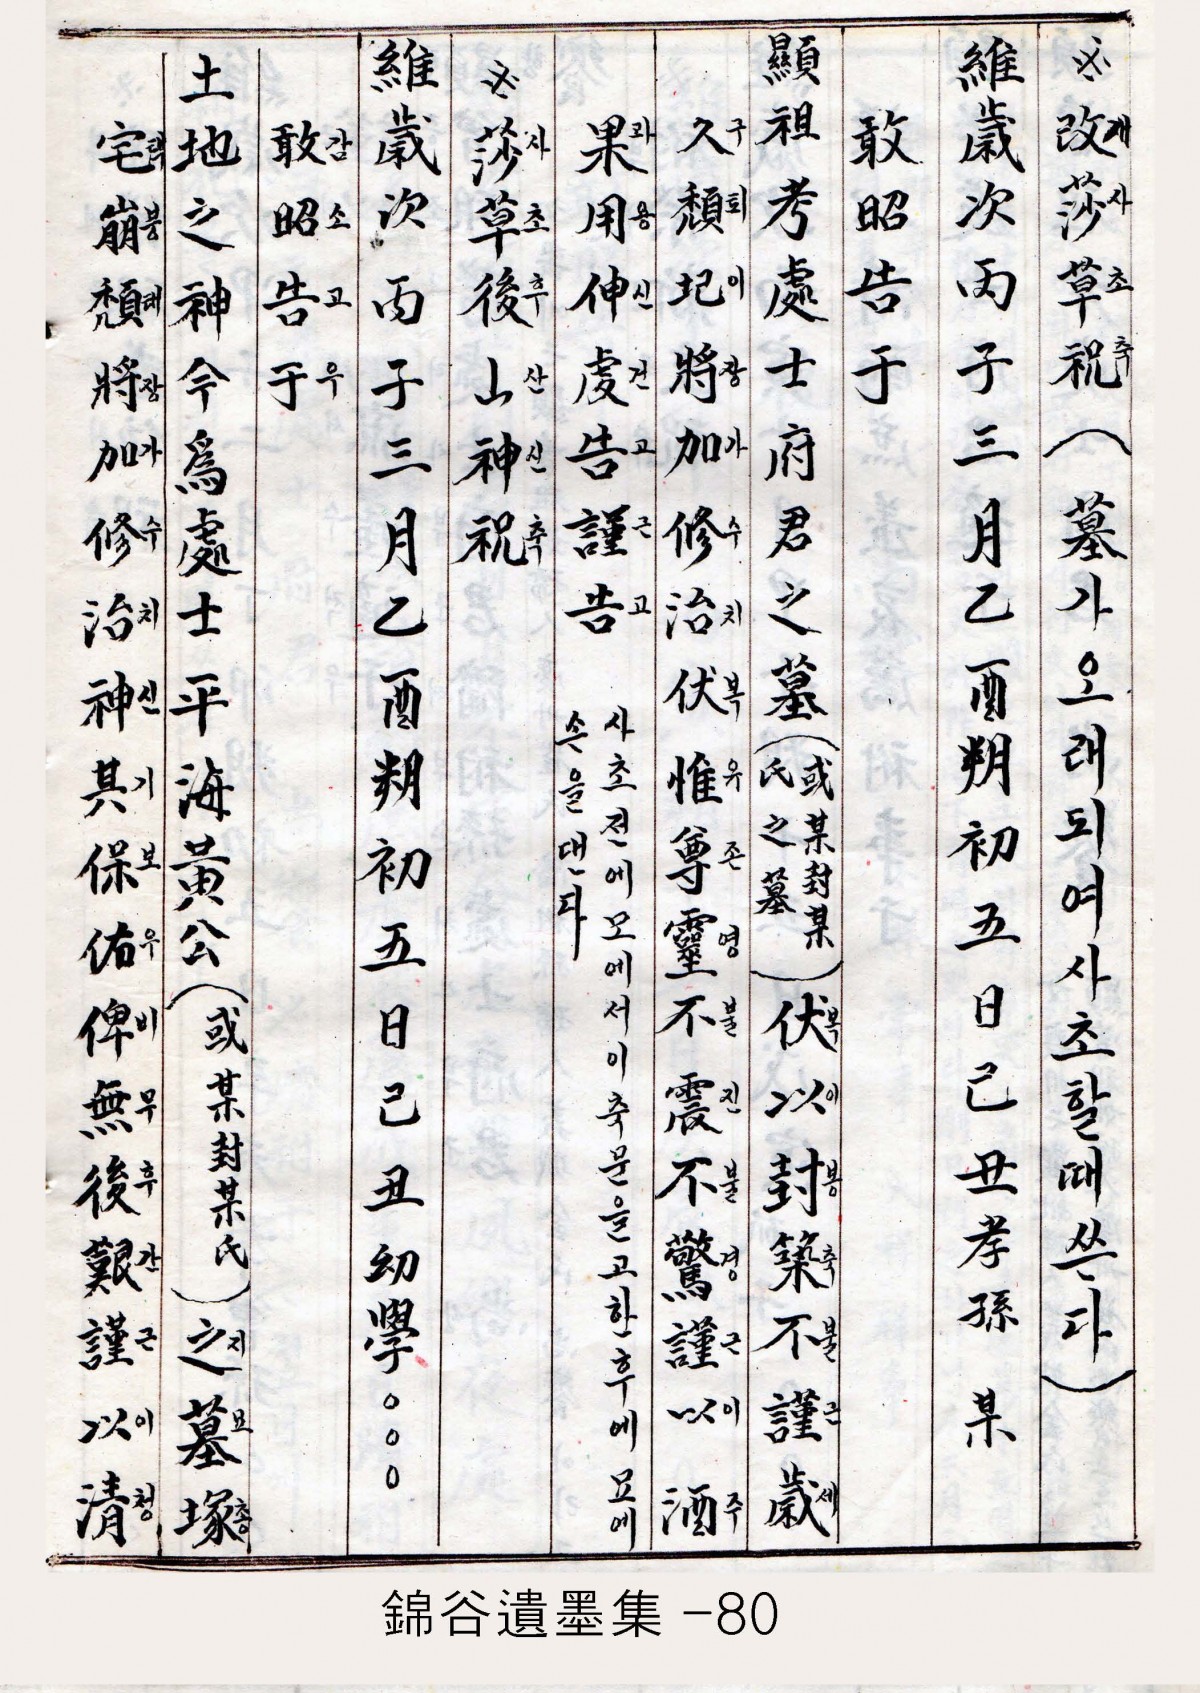 ※改개莎사草초祝축(墓가오래되여사초할때쓴다)
維歲次丙子三月乙酉朔初五日己丑孝孫 某
敢昭告于
顯祖考處士府君之墓(或某封某氏之墓)伏복以이封봉築축不불謹근歲세
久구頹퇴圮이將장加가修수治치伏복惟유尊존靈영不불震진不불驚경謹근以이酒주
果과用용伸신虔건告고謹근告고 사초전에모에서이축문을고한후에묘에
손을댄다
※莎사草초後후山산神신祝축
維歲次丙子三月乙酉朔初五日己丑幼學○○○
敢감昭소告고于우
土地之神今爲處士平海黃公(或某封某氏)之지墓묘塚총
宅택崩붕頹퇴將장加가修수治치神신其기保보佑우俾비無무後후艱간謹근以이清청
錦谷遺墨集 -80